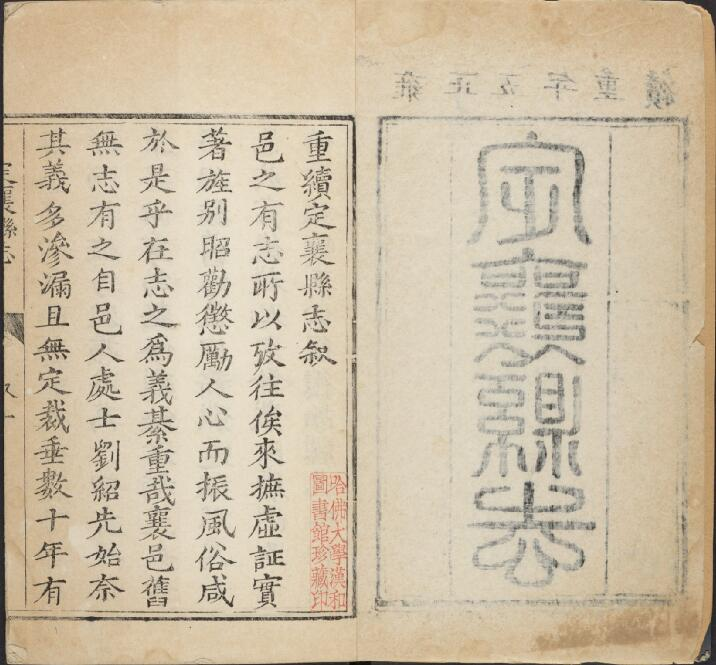 雍正五年重續
定襄縣志
重續定襄縣志叙
邑之有志所以攷往俟來摭虛証實
著旌别昭勸懲勵人心而振風俗咸
於是乎在志之爲義綦重哉襄邑舊
無志有之自邑人處士劉紹先始奈
其義多滲漏且無定裁垂數十年有
定襄縣志
哈佛大學漢和
圖書館珍藏印